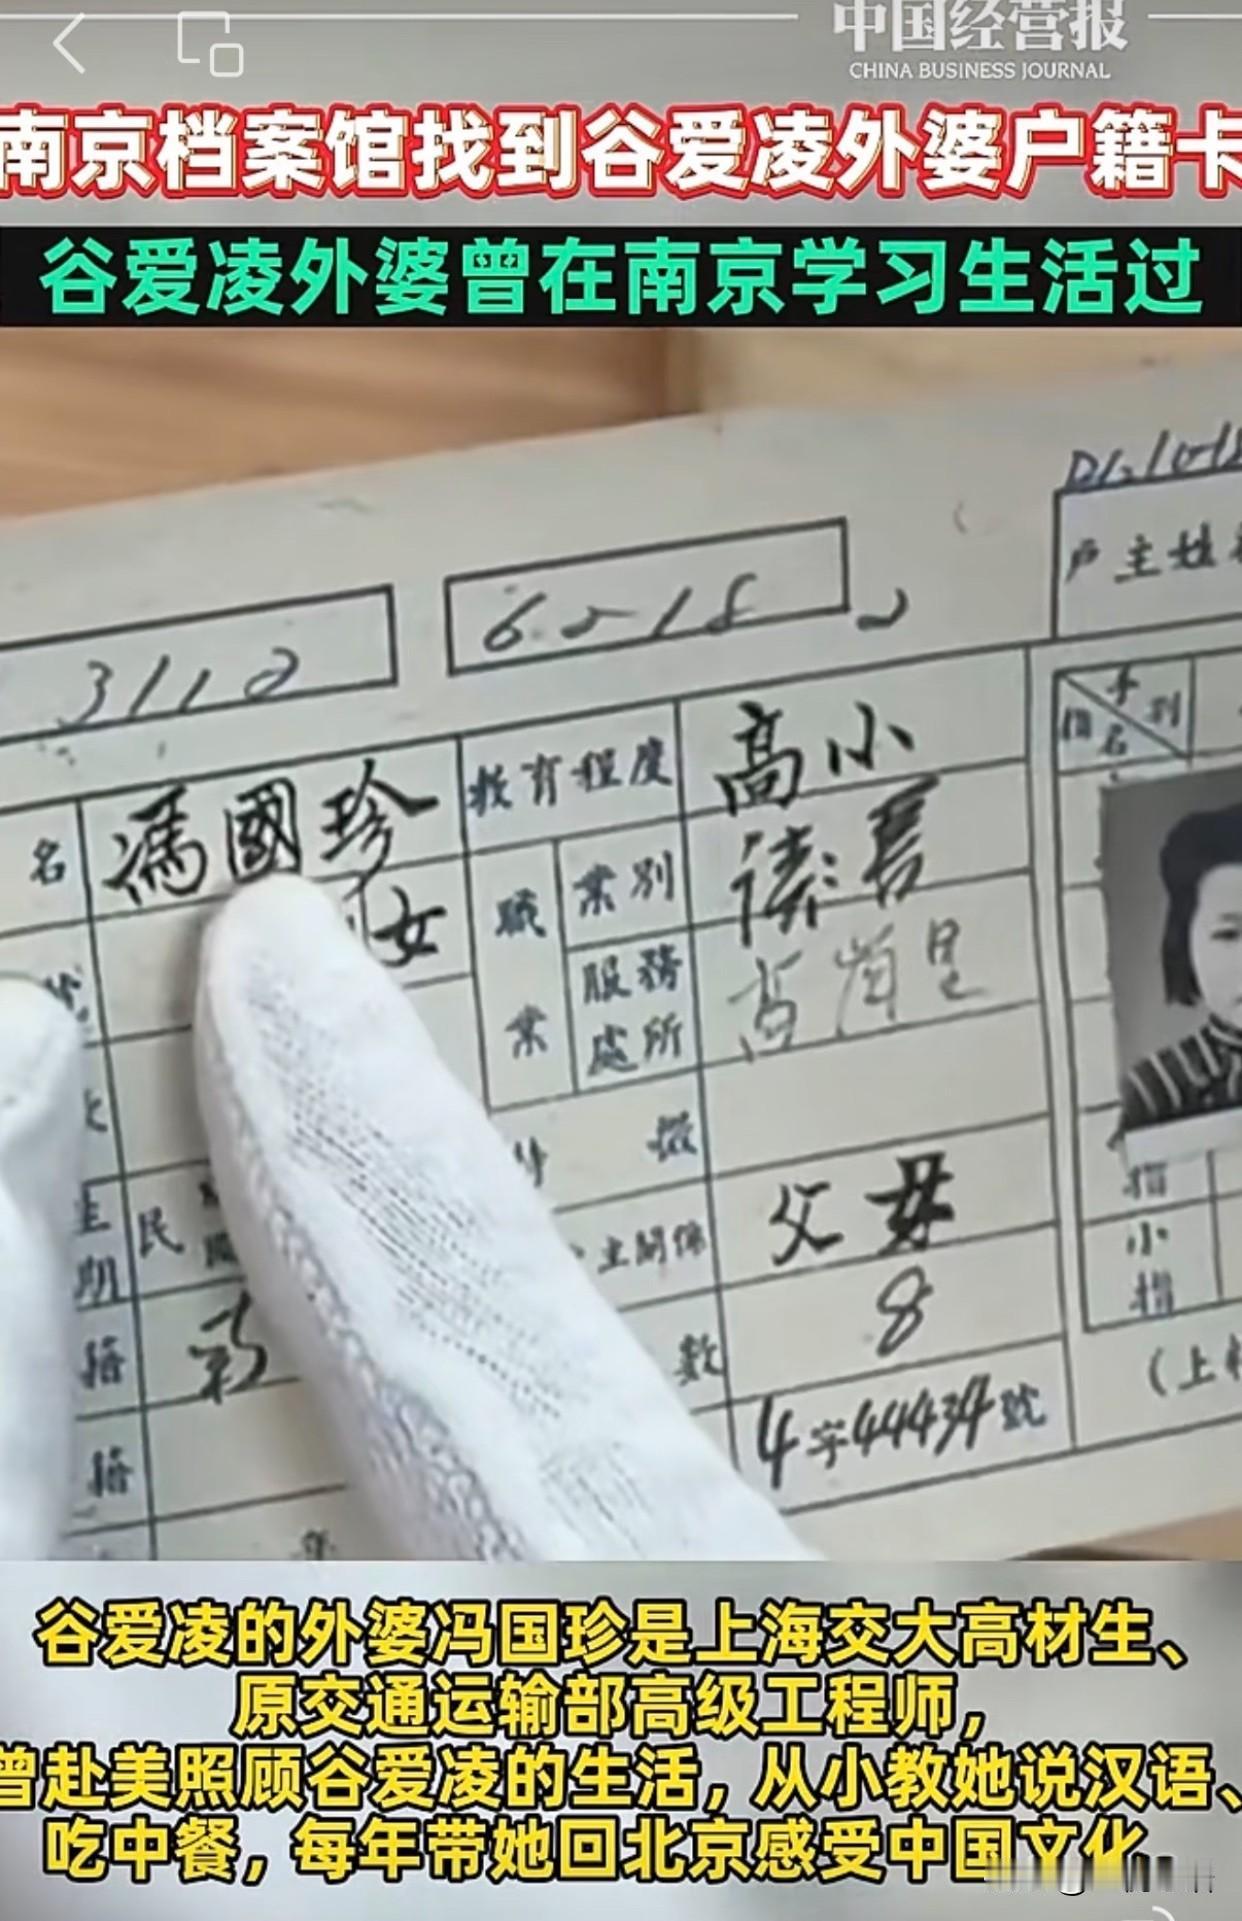 中国经营报
CHINA BUSINESS JOURNAL
南京档案馆找到谷爱凌外婆户籍卡
谷爱凌外婆曾在南京学习生活过
户主姓
3112
名
馮國珍
教育程度
高小
女
職業
業別
讀書
服務處所
民
主關係
父母
數
8
籍
4字44434號
籍
年
指
小指
(上
谷爱凌的外婆冯国珍是上海交大高材生、
原交通运输部高级工程师，
曾赴美照顾谷爱凌的生活，从小教她说汉语、
吃中餐，每年带她回北京感受中国文化